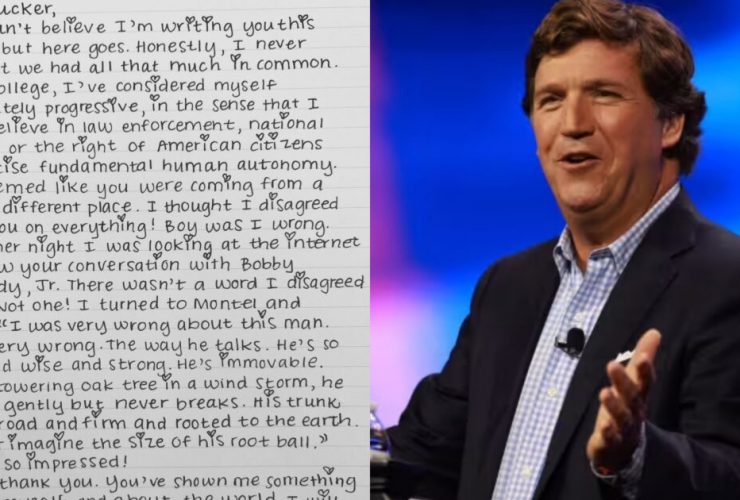 ucker,
n't believe I'm writing you this
but here goes. Honestly, I never
t we had all that much in common.
ollege, I've considered myself
tely progressive, in the sense that I
elieve in law enforcement, national
or the right of American citizens
cise fundamental human autonomy.
emed like you were coming from a
different place. I thought I disagreed
ou on everything! Boy was I wrong.
her night I was looking at the internet
w your conversation with Bobby
dy, Jr. There wasn't a word I disagreed
Not one! I turned to Montel and
"I was very wrong about this man.
ery wrong. The way he talks. He's so
d wise and strong. He's immovable.
towering oak tree in a wind storm, he
gently but never breaks. His trunk
road and firm and rooted to the earth.
imagine the size of his root ball."
so impressed!
thank you. You've shown me something
and about the world. I